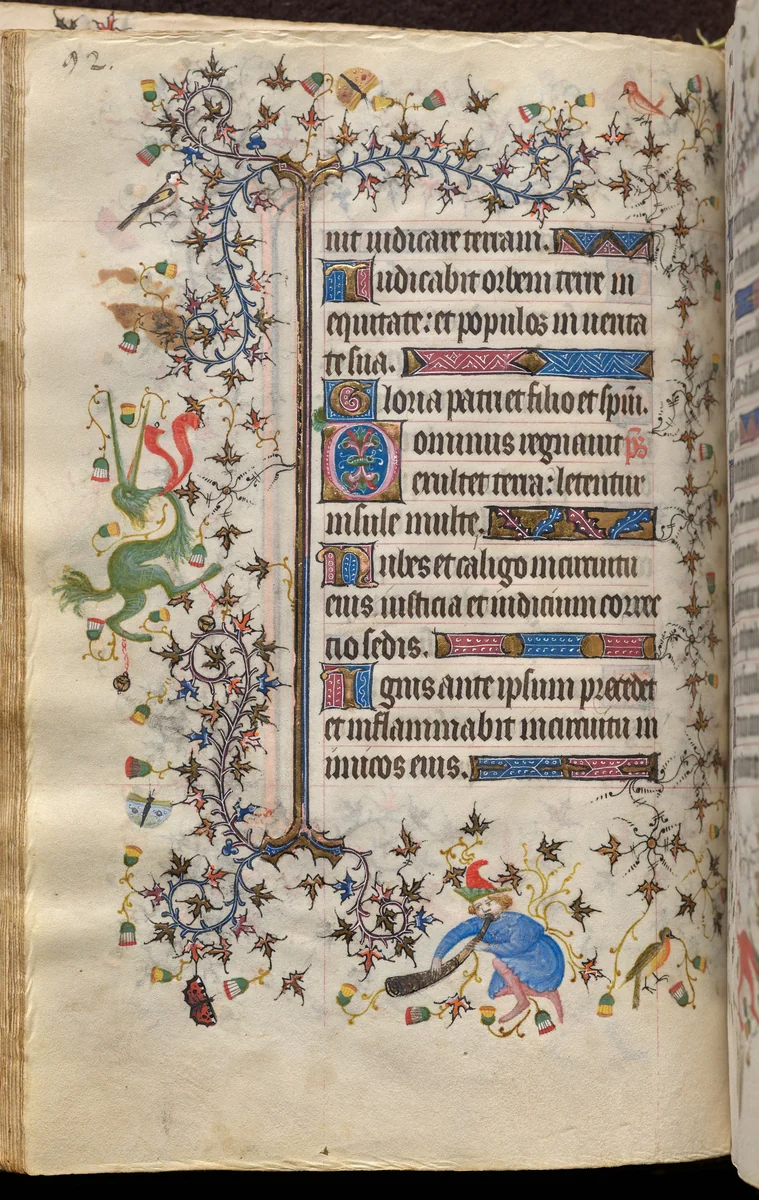 92.
nit iudicare terram.
Iudicabit orbem terre in
equitate: et populos in uerita
te sua.
Gloria patri et filio et spm̄.
Dominus regnauit ps̄
exultet terra: letentur
insule multe.
Nubes et caligo in circuitu
eius iusticia et iudicium correc
cio sedis.
Ignis ante ipsum precedet
et inflammabit in circuitu in
imicos eius.